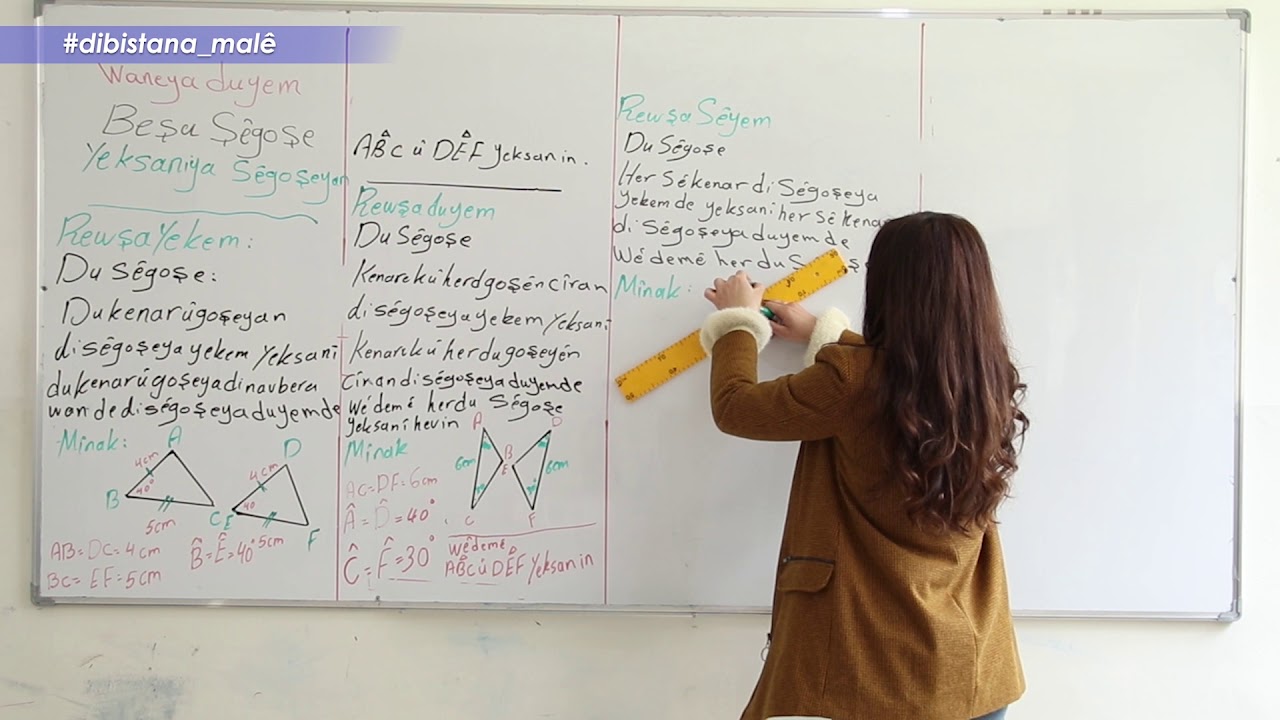 #dibistana_malê
Waneya duyem
Beşa Sêgoşe
Yeksaniya Sêgoşeyan
Rewşa Yekem:
Du Sêgoşe:
Du kenar û goşeyan
di sêgoşeya yekem yeksanî
du kenar û goşeya di navbera
wan de di sêgoşeya duyem de
Minak:
A
4cm
B
40°
5cm
C
D
4cm
E
40
5cm
F
AB=DC=4cm
BC=EF=5cm
B̂=Ê=40°
ABC û DEF yeksan in.
Rewşa duyem
Du Sêgoşe
Kenarek û herd goşên cîran
di sêgoşeya yekem yeksanî
Kenarek û herdu goşeyên
cîran di sêgoşeya duyem de
Wê demê herdu Sêgoşe
yeksanî hev in
Minak
A
6cm
C
B
E
D
6cm
F
AC=DF=6cm
Â=D̂=40°
Ĉ=F̂=30°
Wê demê
ABC û DEF yeksan in
Rewşa Sêyem
Du Sêgoşe
Her sê kenar di Sêgoşeya
yekem de yeksanî her sê
di Sêgoşeya duyem de
Wê demê her du
Mînak: